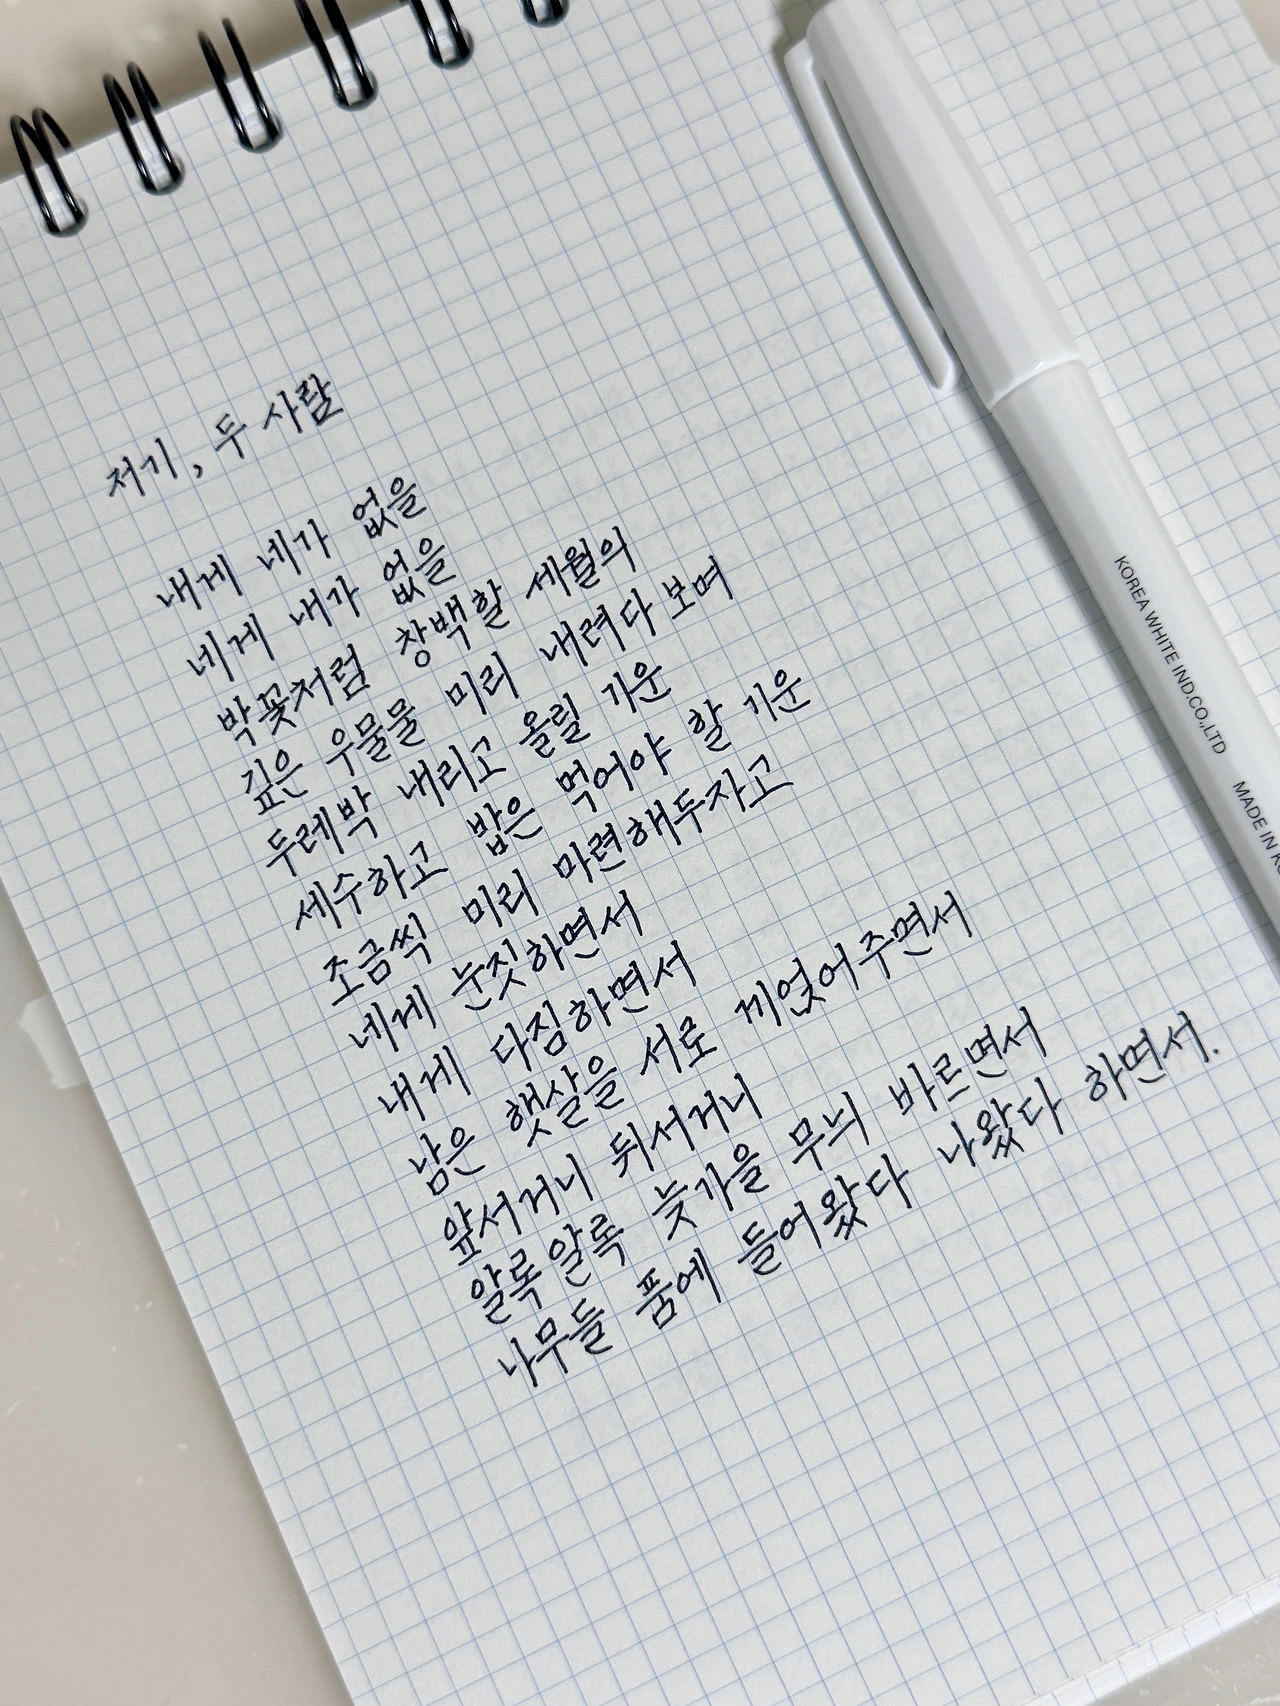 저기, 두 사람
내게 네가 없을
네게 내가 없을
박꽃처럼 창백할 세월의
깊은 우물물 미리 내려다 보며
두레박 내리고 올릴 기운
세수하고 밟은 먹어야 할 기운
조금씩 미리 마련해두자고
네게 눈짓하면서
내게 다짐하면서
남은 햇살을 서로 끼얹어주면서
앞서거니 뒤서거니
알록알록 늦가을 무늬 바르면서
나무들 품에 들어왔다 나왔다 하면서.
KOREA WHITE IND.CO.,LTD MADE IN